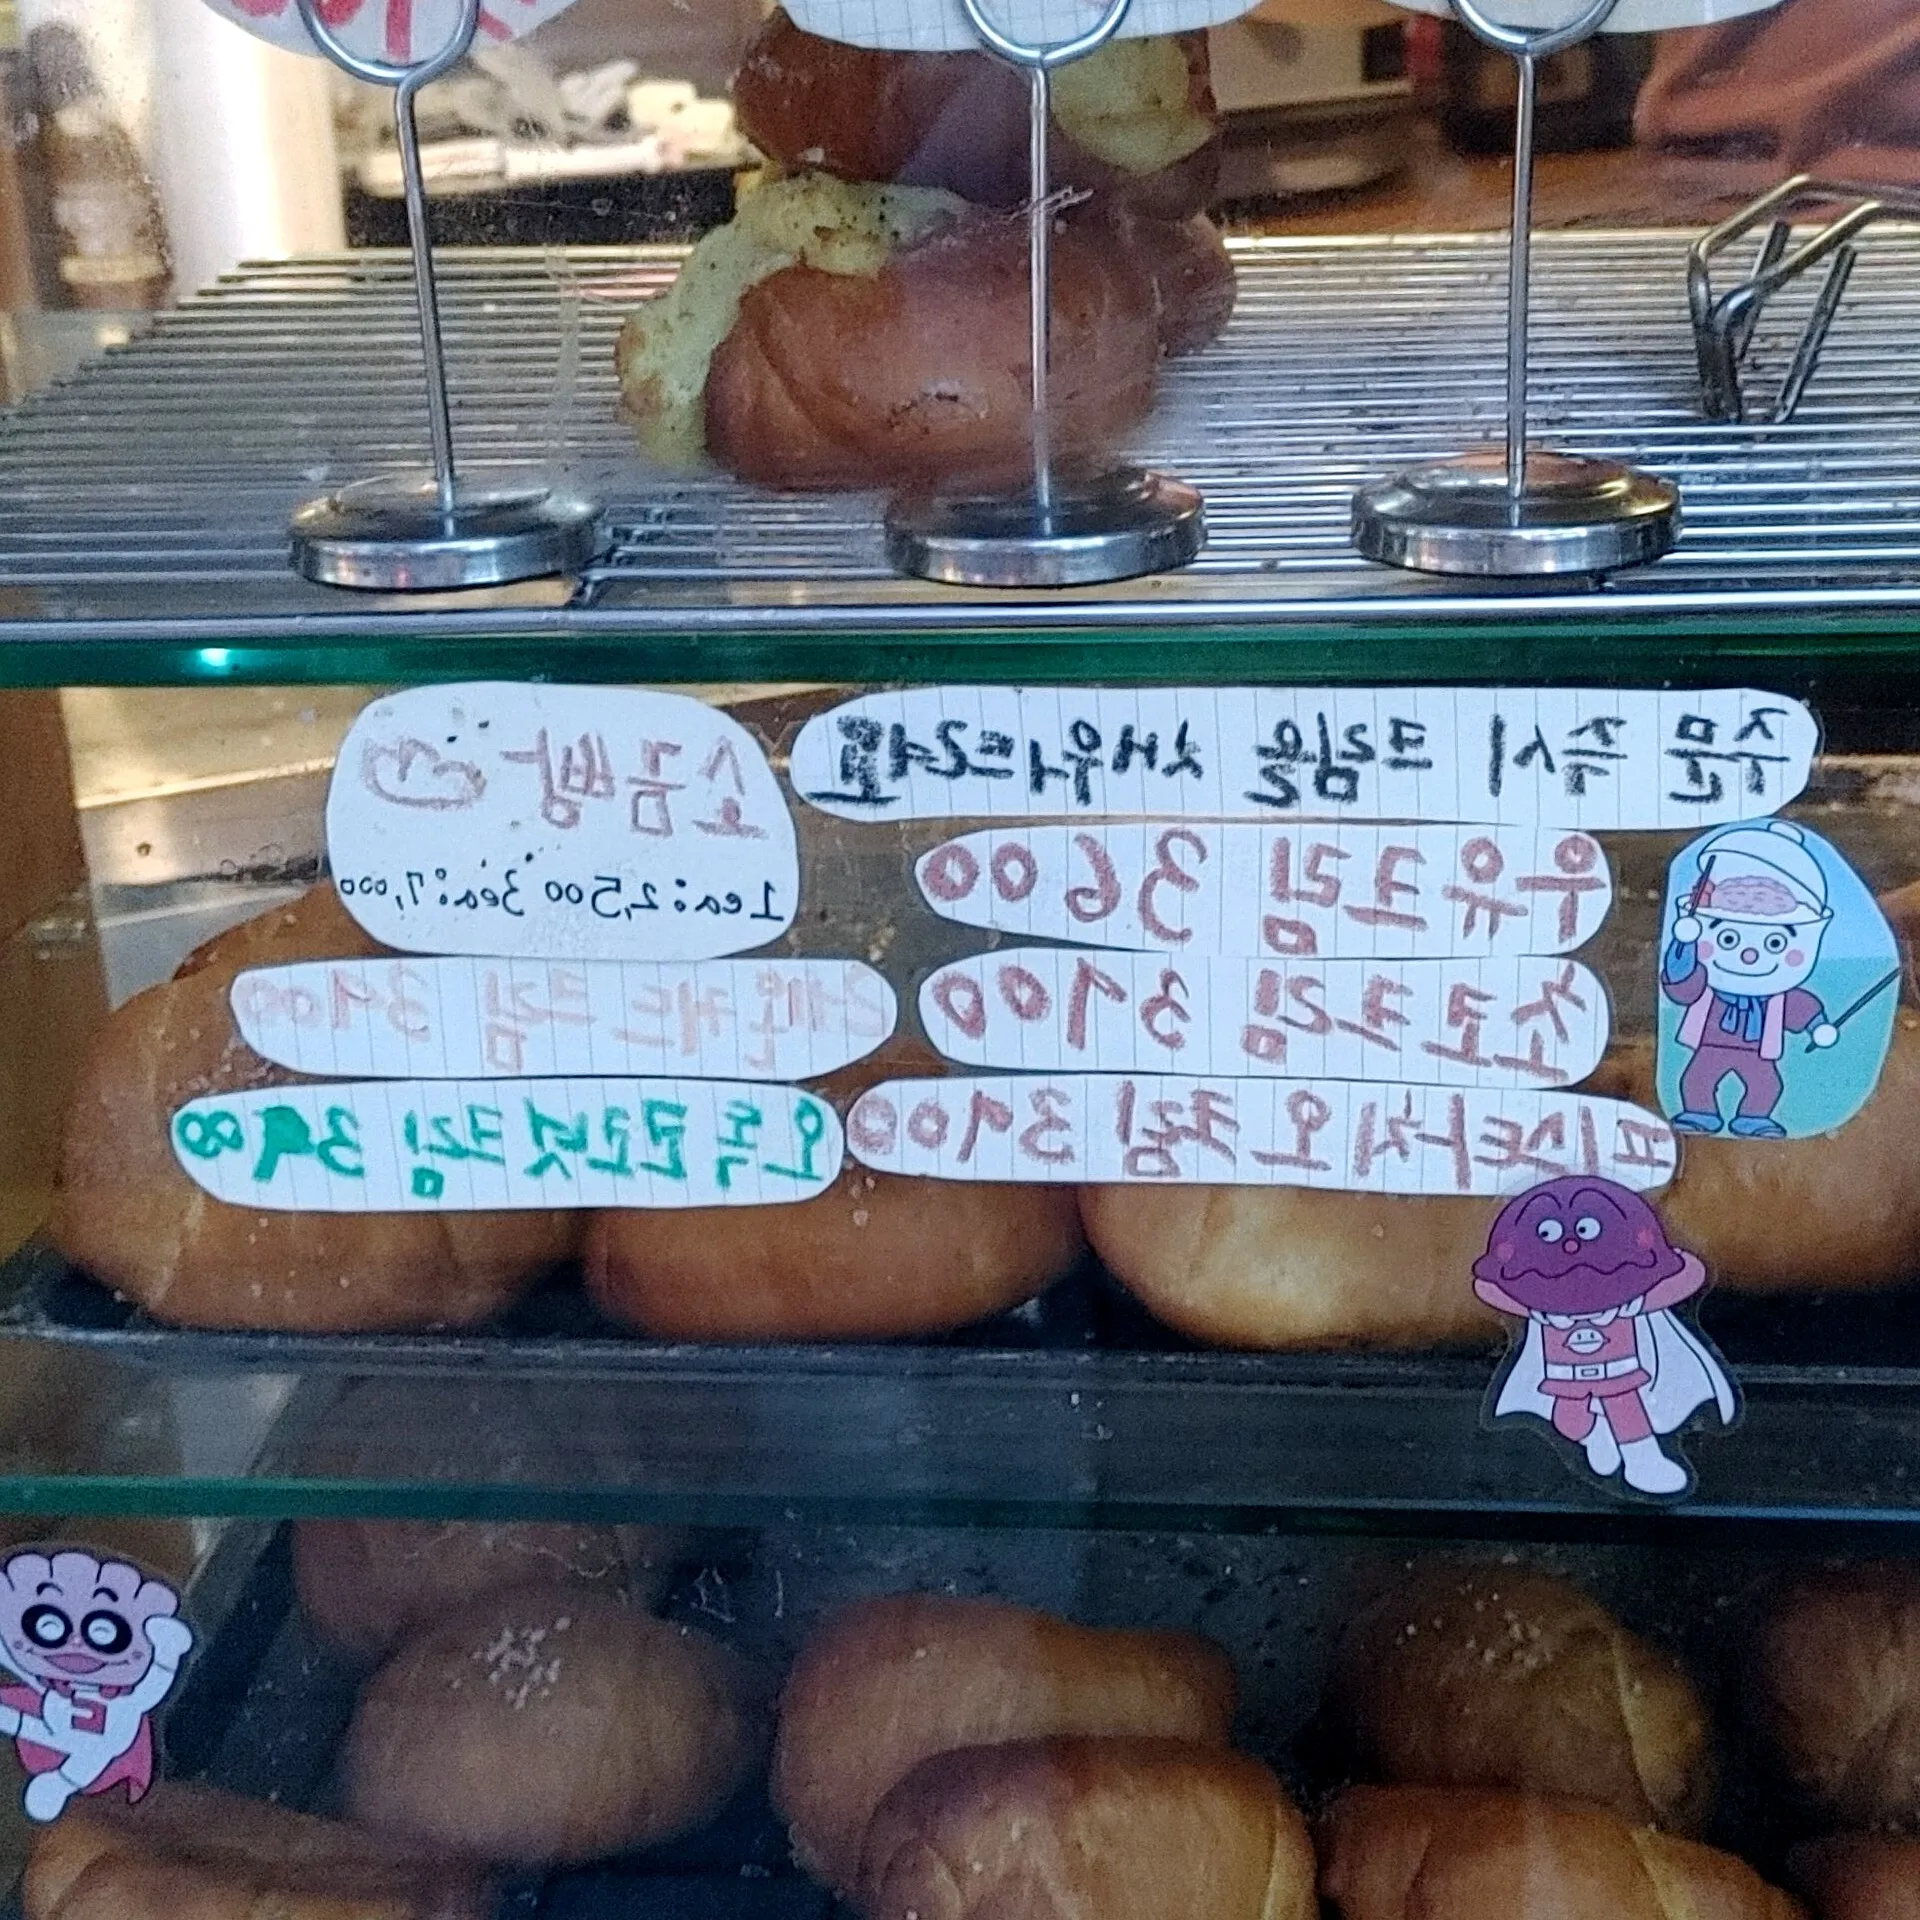 주문 즉시 크림을 채워드려요
우유크림 3600
초코크림 3900
피스타치오크림 3900
소금빵
1ea:2,500 3ea:7,000
레몬커드크림 3900
크림 3900